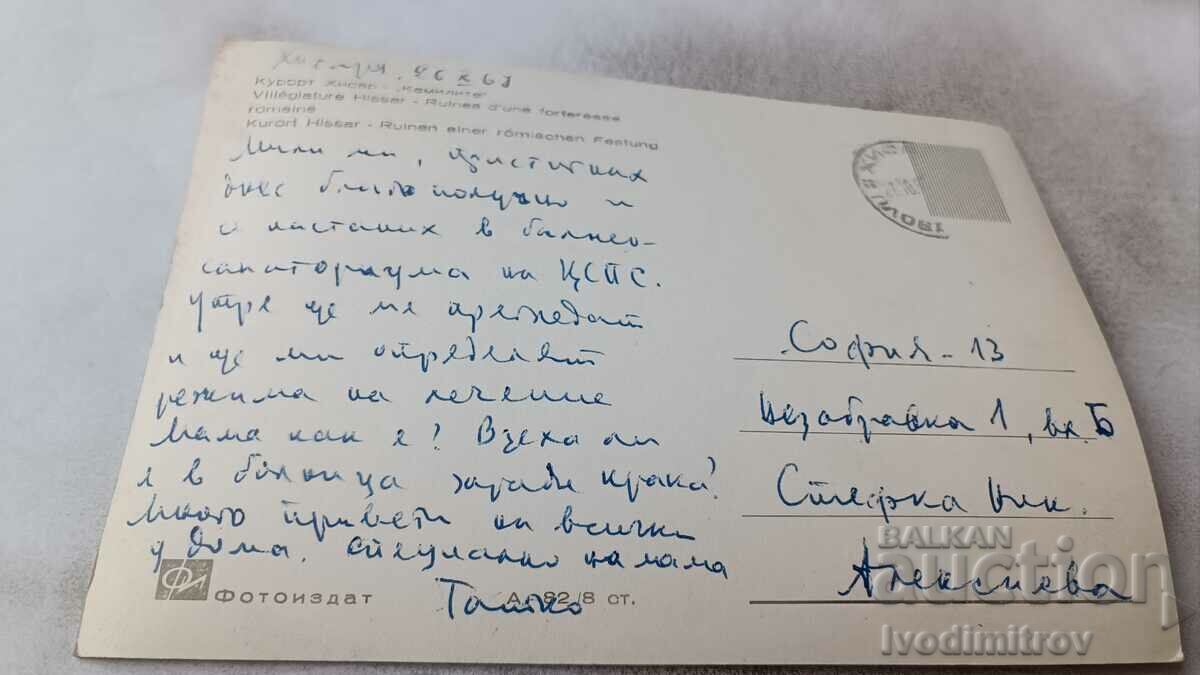 Хисаря. 26 X 67
Курорт Хисар - „Камилите"
Villégiature Hissar - Ruines d'une forteresse
romaine
Kurort Hissar - Ruinen einer römischen Festung
Мили ми, пристигнах
днес благополучно и
и настаних в балнео-
санаториума на ЦСПС.
Утре ще ме прегледат
и ще ми определят
режима на лечение
Мама как е? Взеха ли
я в болница заради крака?
Много привети на всички
у дома. Специално на мама
Татко
София - 13
Незабравка 1, вх. Б
Стефка Ник.
Алексиева
Фотоиздат
А - 82/8 ст.
BALKAN
auction
Ivodimitrov